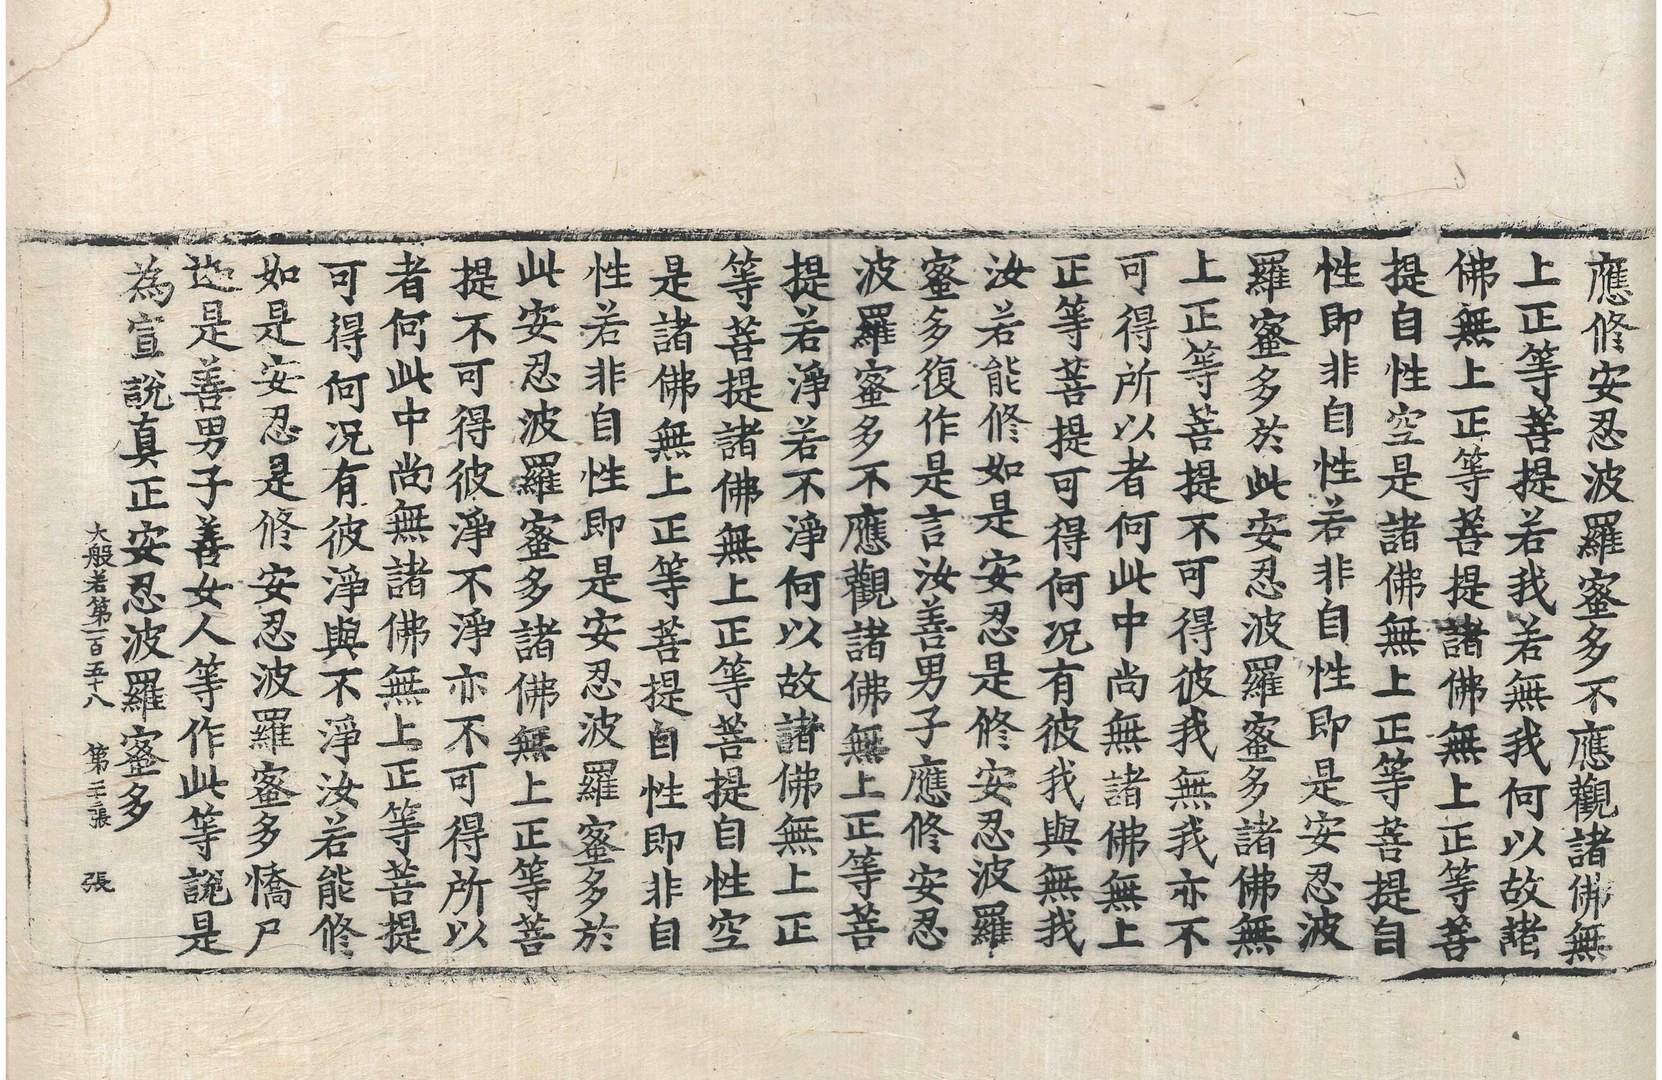 應修安忍波羅蜜多不應觀諸佛無
上正等菩提若我若無我何以故諸
佛無上正等菩提諸佛無上正等菩
提自性空是諸佛無上正等菩提自
性即非自性若非自性即是安忍波
羅蜜多於此安忍波羅蜜多諸佛無
上正等菩提不可得彼我無我亦不
可得所以者何此中尚無諸佛無上
正等菩提可得何況有彼我與無我
汝若能修如是安忍是修安忍波羅
蜜多復作是言汝善男子應修安忍
波羅蜜多不應觀諸佛無上正等菩
提若淨若不淨何以故諸佛無上正
等菩提諸佛無上正等菩提自性空
是諸佛無上正等菩提自性即非自
性若非自性即是安忍波羅蜜多於
此安忍波羅蜜多諸佛無上正等菩
提不可得彼淨不淨亦不可得所以
者何此中尚無諸佛無上正等菩提
可得何況有彼淨與不淨汝若能修
如是安忍是修安忍波羅蜜多憍尸
迦是善男子善女人等作此等說是
為宣說真正安忍波羅蜜多
大般若第一百五十八 第二張 張